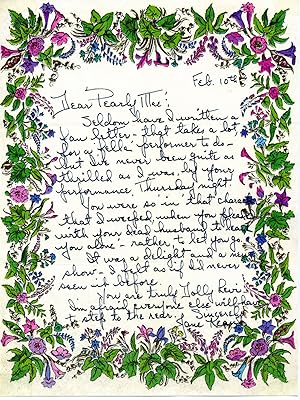 Feb. 10th
Dear Pearly Mae:
Seldom have I written a
fan letter - that takes a lot
for a fella performer to do -
but I've never been quite as
thrilled as I was by your
performance Thursday night.
You were so in that char
that I weeped when you
with your dead husband to
you alone - rather to let you go.
It was a delight and a new
show - I felt as if I'd never
seen it before.
You are truly Dolly Levi -
I'm afraid everyone else will have
to step to the rear. Sincerely
Jane